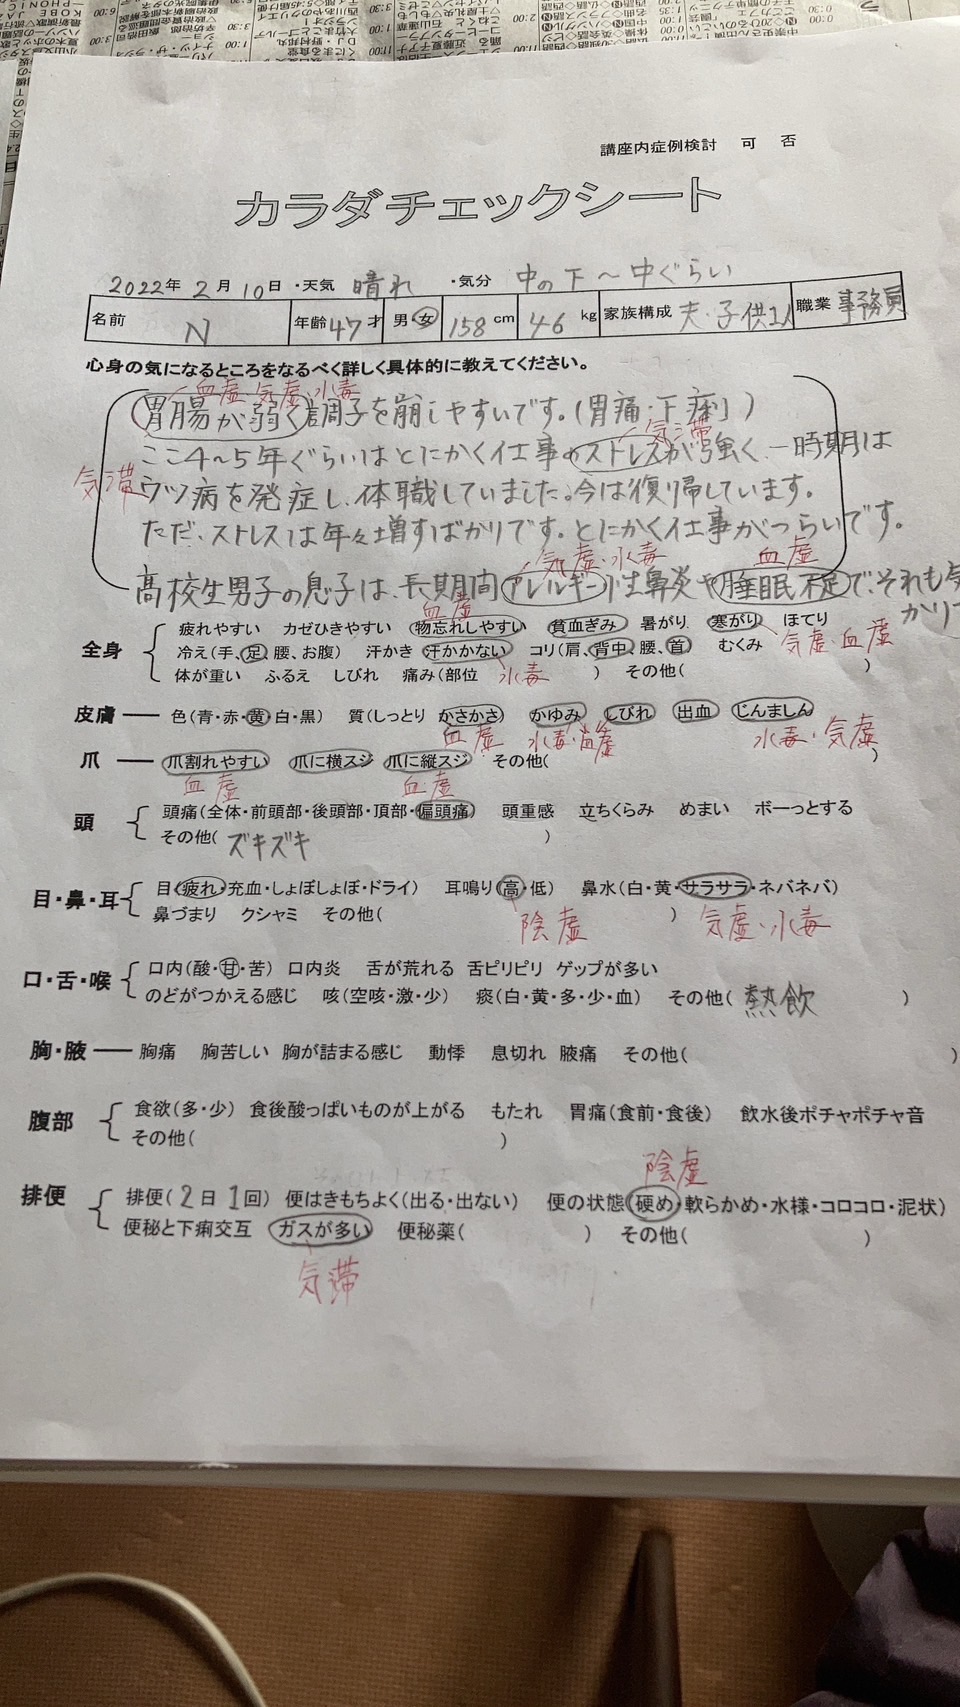 講座内症例検討 可 否
カラダチェックシート
2022年 2月 10日 ・天気 晴れ ・気分 中の下～中ぐらい
名前 N 年齢 47才 男・女 158cm 46kg 家族構成 夫・子供1人 職業 事務員
心身の気になるところをなるべく詳しく具体的に教えてください。
血虚・気虚・水毒
胃腸が弱く調子を崩しやすいです。(胃痛・下痢)
気滞
ここ4～5年ぐらいはとにかく仕事のストレスが強く、一時期は
気滞
ウツ病を発症し、休職していました。今は復帰しています。
ただ、ストレスは年々増すばかりです。とにかく仕事がつらいです。
気虚・水毒 血虚
高校生男子の息子は、長期間アレルギー性鼻炎や睡眠不足で、それも気
がかりで
血虚
全身
疲れやすい カゼひきやすい 物忘れしやすい 貧血ぎみ 暑がり 寒がり ほてり
気虚・血虚
冷え(手、足、腰、お腹) 汗かき 汗かかない コリ(肩、背中、腰、首) むくみ
体が重い ふるえ しびれ 痛み(部位 水毒 ) その他( )
皮膚 ── 色(青・赤・黄・白・黒) 質(しっとり かさかさ) かゆみ しびれ 出血 じんましん
血虚 水毒・血虚 水毒・気虚
爪 ── 爪割れやすい 爪に横スジ 爪に縦スジ その他( )
血虚 血虚
頭
頭痛(全体・前頭部・後頭部・頂部・偏頭痛) 頭重感 立ちくらみ めまい ボーっとする
その他( ズキズキ )
目・鼻・耳
目(疲れ・充血・しょぼしょぼ・ドライ) 耳鳴り(高・低) 鼻水(白・黄・サラサラ・ネバネバ)
鼻づまり クシャミ その他( )
陰虚 気虚・水毒
口・舌・喉
口内(酸・甘・苦) 口内炎 舌が荒れる 舌ピリピリ ゲップが多い
のどがつかえる感じ 咳(空咳・激・少) 痰(白・黄・多・少・血) その他( 熱飲 )
胸・腋 ── 胸痛 胸苦しい 胸が詰まる感じ 動悸 息切れ 腋痛 その他( )
腹部
食欲(多・少) 食後酸っぱいものが上がる もたれ 胃痛(食前・食後) 飲水後ポチャポチャ音
その他( )
陰虚
排便
排便( 2日 1回) 便はきもちよく(出る・出ない) 便の状態(硬め・軟らかめ・水様・コロコロ・泥状)
便秘と下痢交互 ガスが多い 便秘薬( ) その他( )
気滞